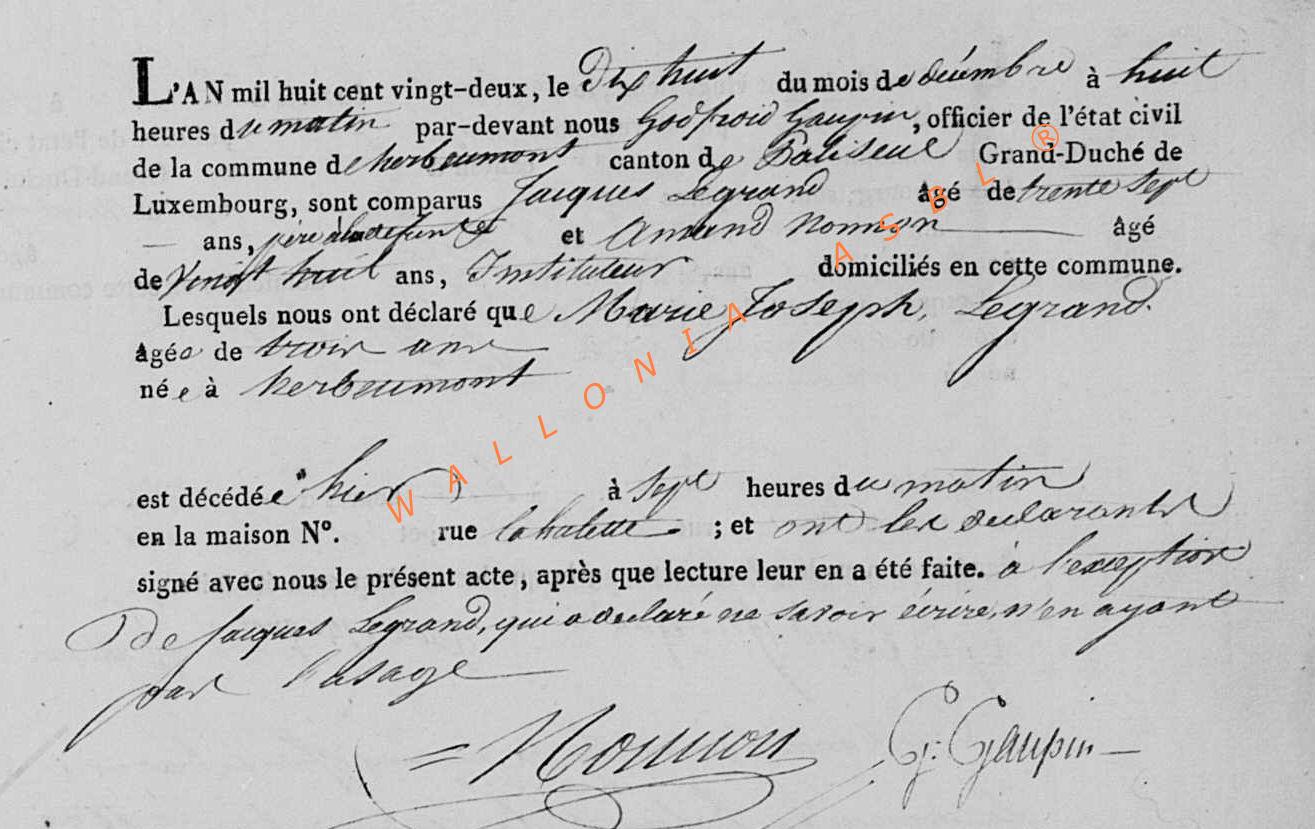 L'AN mil huit cent vingt-deux, le Dix huit du mois de décembre à huit
heures du matin par-devant nous Godfroid Gaupin, officier de l'état civil
de la commune de herbeumont canton de Paliseul Grand-Duché de
Luxembourg, sont comparus Jacques Legrand âgé de trente sept
ans, père à la defunte et Amand Nonnon âgé
de Vingt huit ans, Instituteur domiciliés en cette commune.
Lesquels nous ont déclaré que Marie Joseph, Legrand.
âgée de trois ans
née à herbeumont
est décédée hier à sept heures du matin
en la maison N°. rue ; et ont les declarants
signé avec nous le présent acte, après que lecture leur en a été faite. à l'exception
De Jacques Legrand, qui a declaré ne savoir écrire, n'en ayant
pas l'usage
Nonnon G. Gaupin
WALLONIA ASBL ®